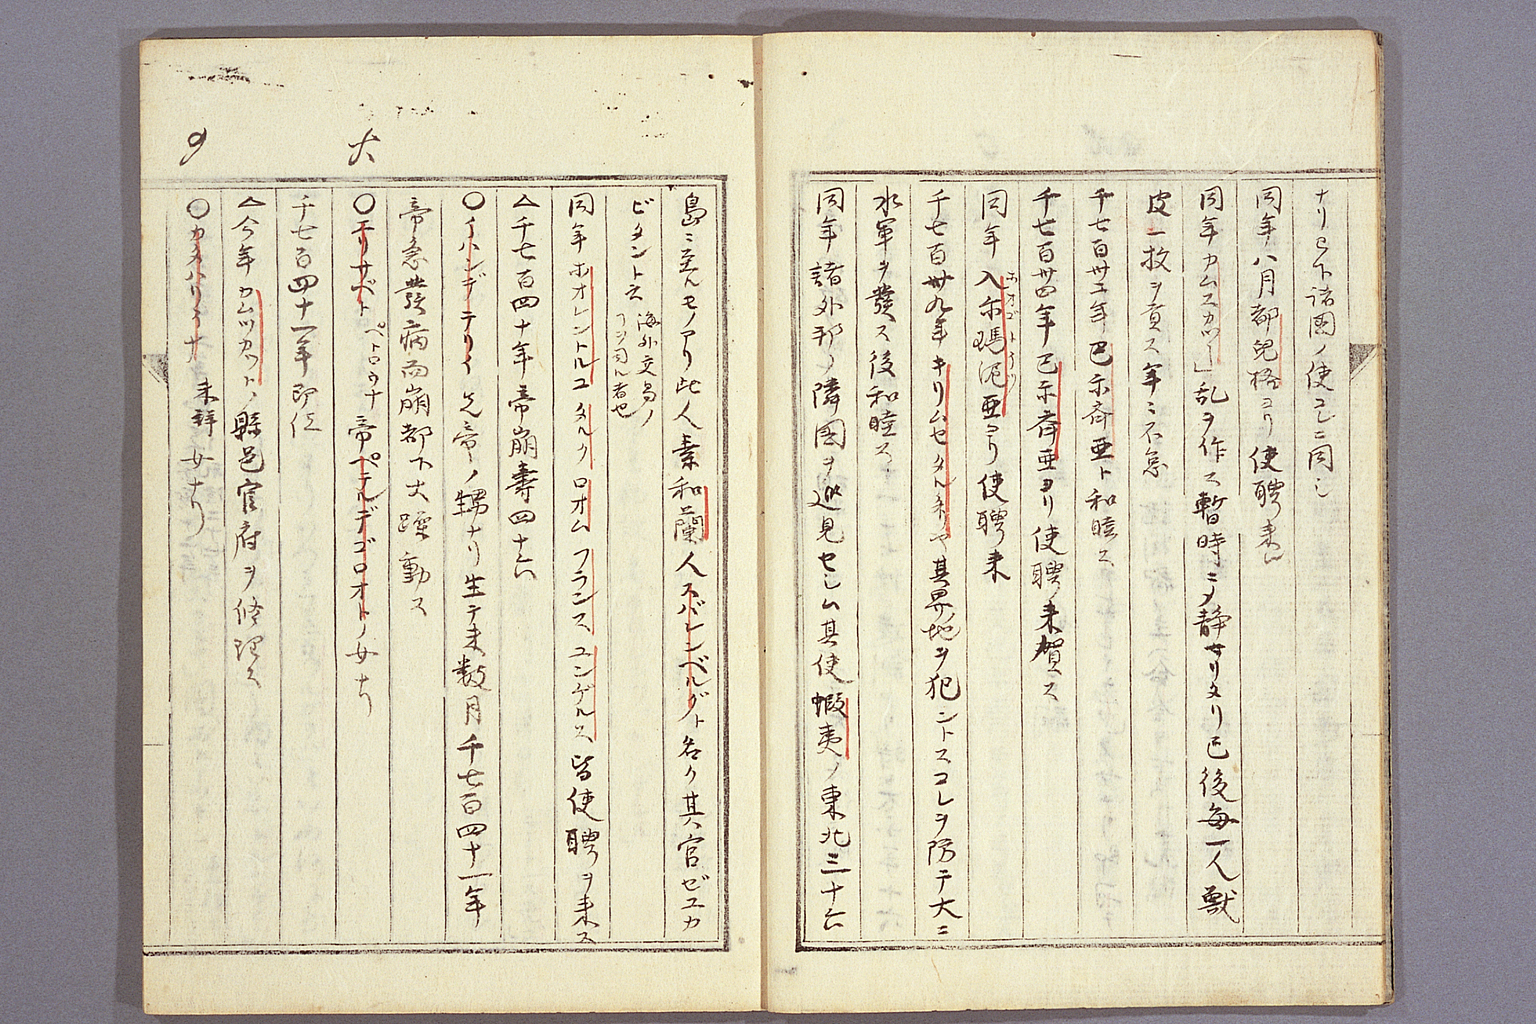 ナリ已下諸國ノ使コレニ同シ
同年八月都兒格ヨリ使聘来ル
同年カムスカツ乱ヲ作ス暫時ニ〆静サリタリ已後毎一人獸
皮一枚ヲ貢ス年ニ不怠
千七百卅二年巴尓斉亜ト和睦ス
千七百卅四年巴尓斉亜ヨリ使聘来賀ス
同年入尓瑪泥亜ヨリ使聘来
千七百卅九年キリムセタルネヤ其界地ヲ犯ントスコレヲ防テ大ニ
水軍ヲ發ス後和睦ス
同年諸外邦ノ隣國ヲ巡見セシム其使蝦夷ノ東北三十六
島ニ至ルモノアリ此人素和蘭人スバレンベルグト名ク其官ゼエカ
ビタント云 海外交易ノ
フヲ司ル者也
同年ホオレントルユタルクロオムフランスユンゲルス皆使聘ヲ来ス
△千七百四十年帝崩壽四十六
〇イハンデテリイ先帝ノ甥ナリ生テ未数月千七百四十一年
帝急發病而崩都下大躁動ス
大
〇エリサベトペトロウナ帝ペテルデゴロオトノ女ナリ
千七百四十一年即位
△今年カムツカツトノ縣邑官府ヲ修理ス
〇カタハリイナ 未詳女ナリ